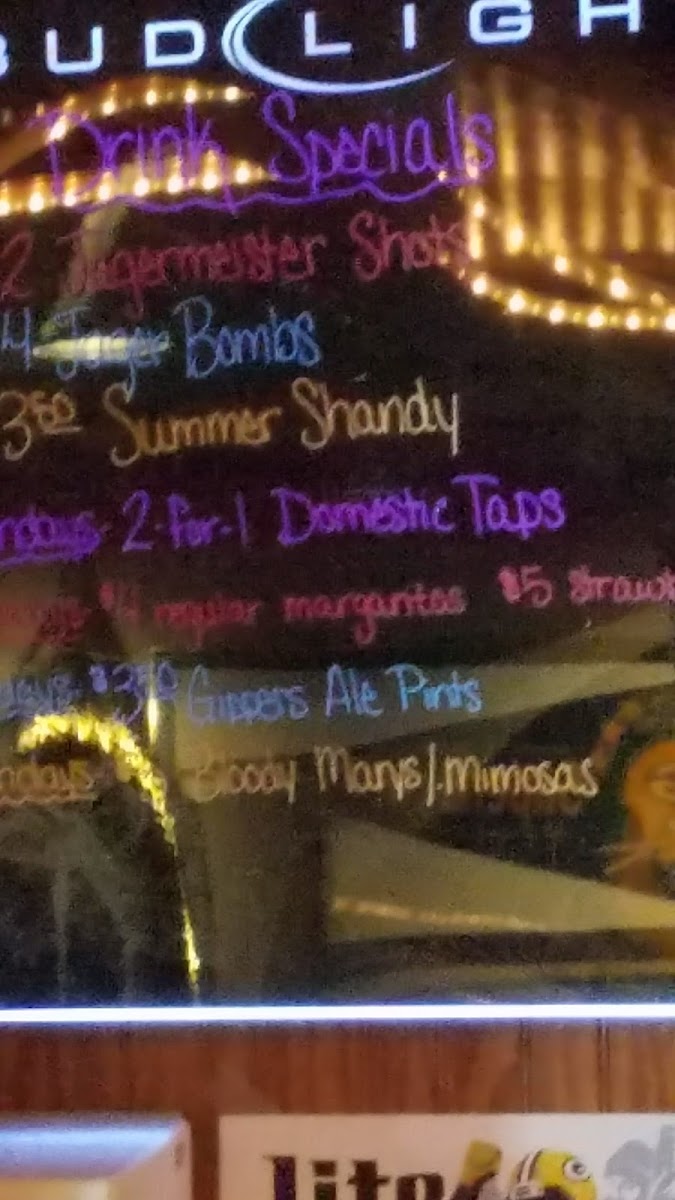 BUD LIGH
Drink Specials
2 Jagermeister Shots
4 Jager Bombs
3⁵⁰ Summer Shandy
ndays 2-for-1 Domestic Taps
$4 regular margaritas $5 Straw
days $3⁵⁰ Gippers Ale Pints
ndays Bloody Marys/Mimosas
lite